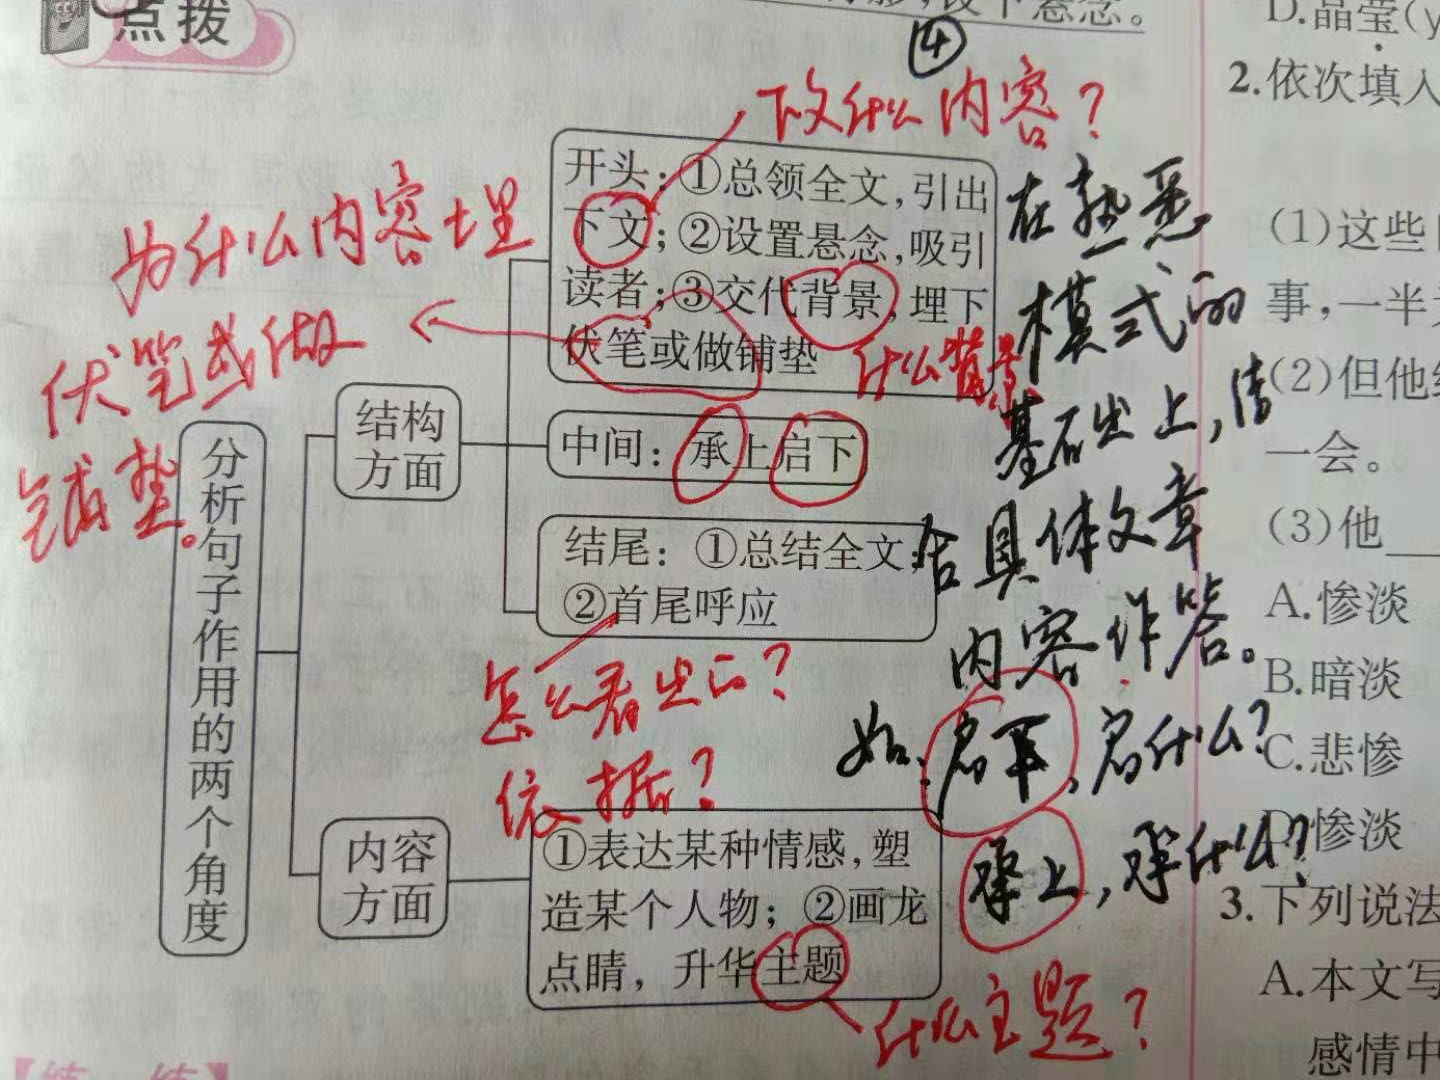 点拨
设下悬念。
④
下文什么内容？
开头：①总领全文，引出
下文；②设置悬念，吸引
读者；③交代背景，埋下
伏笔或做铺垫
为什么内容埋
伏笔或做
铺垫。
什么背景
结构
方面
中间：承上启下
结尾：①总结全文
②首尾呼应
怎么看出的？
依据？
分析句子作用的两个角度
内容
方面
①表达某种情感，塑
造某个人物；②画龙
点睛，升华主题
什么主题？
在熟悉
模式的
基础上，结
合具体文章
内容作答。
如、启下，启什么？
承上，承什么？
【练一练】
D.晶莹(y
2.依次填入
(1)这些
事，一半
(2)但他
一会。
(3)他
A.惨淡
B.暗淡
C.悲惨
D.惨淡
3.下列说法
A.本文写
感情中